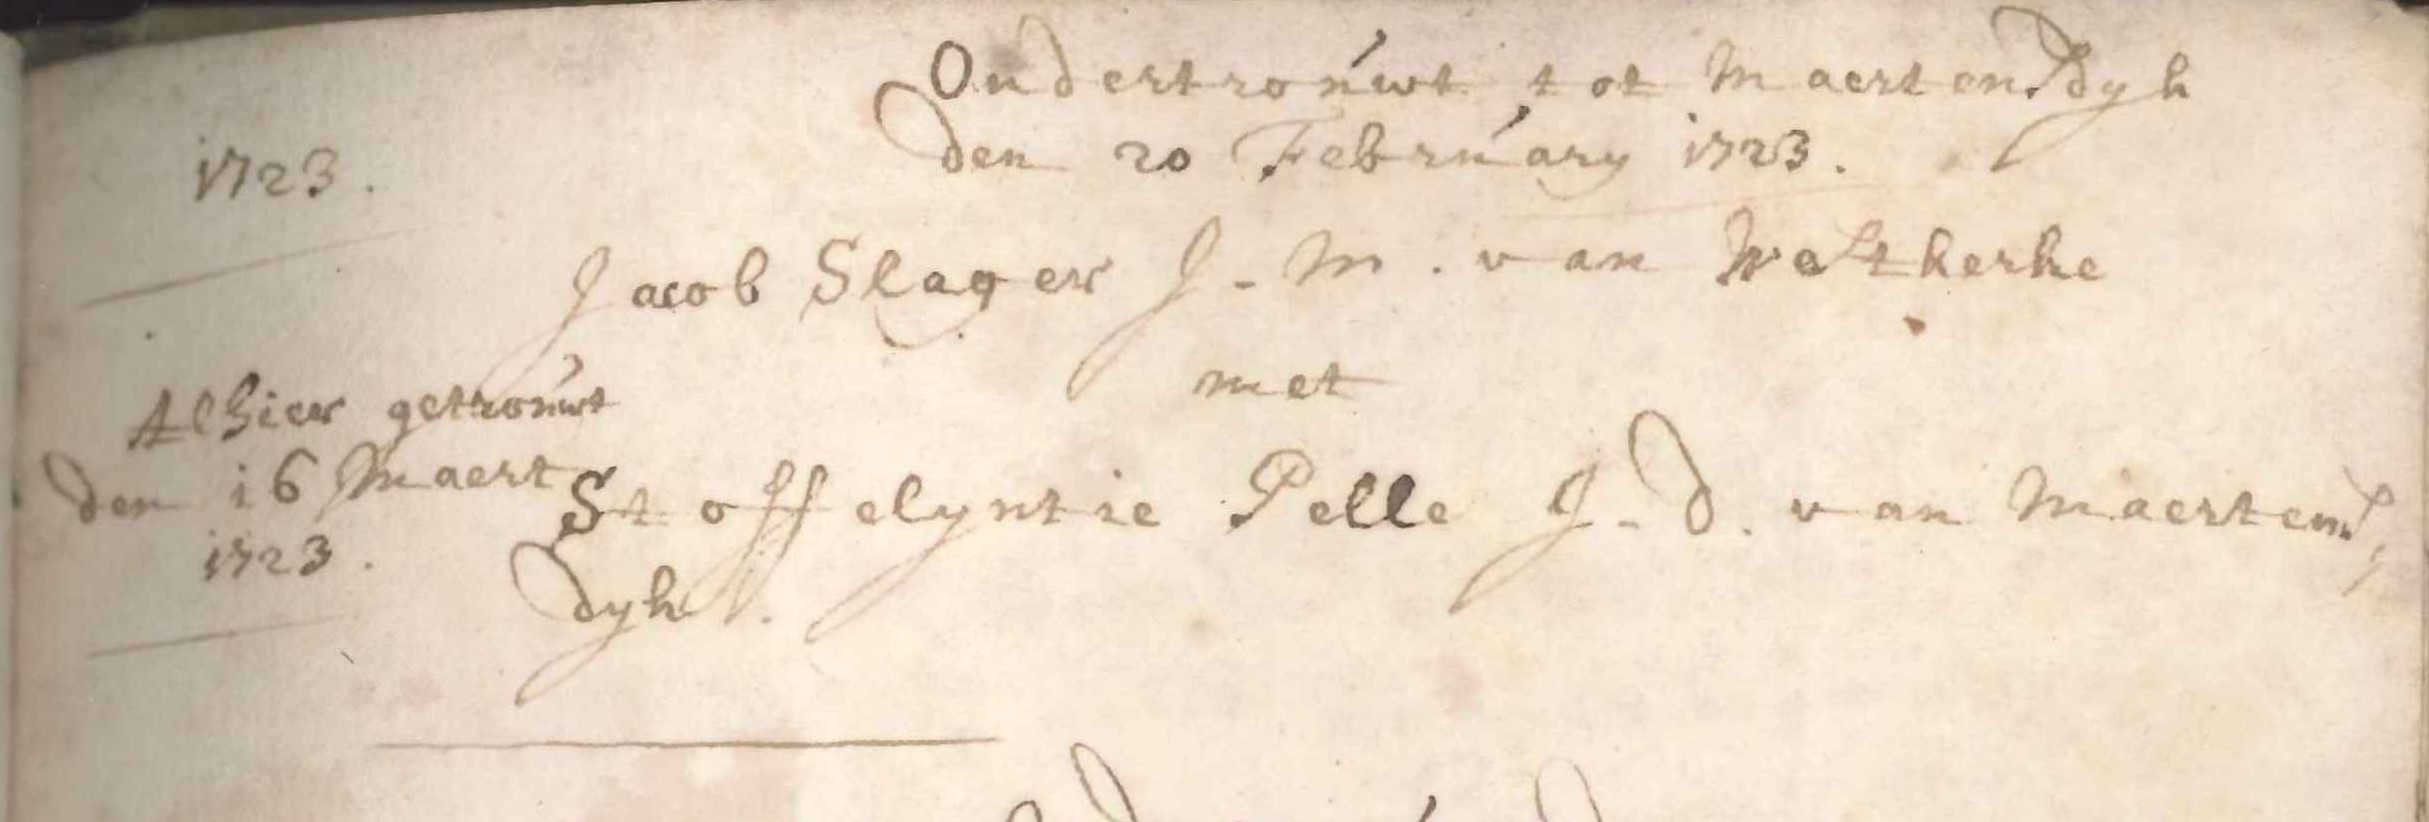 Ondertrouwt tot Maertensdyk
den 20 February 1723.
1723.
Jacob Slager J. M. van Westkerke
met
Alhier getrouwt
den 16 Maert
1723.
Stoffelyntie Pelle J. D. van Maertens,
dyk.